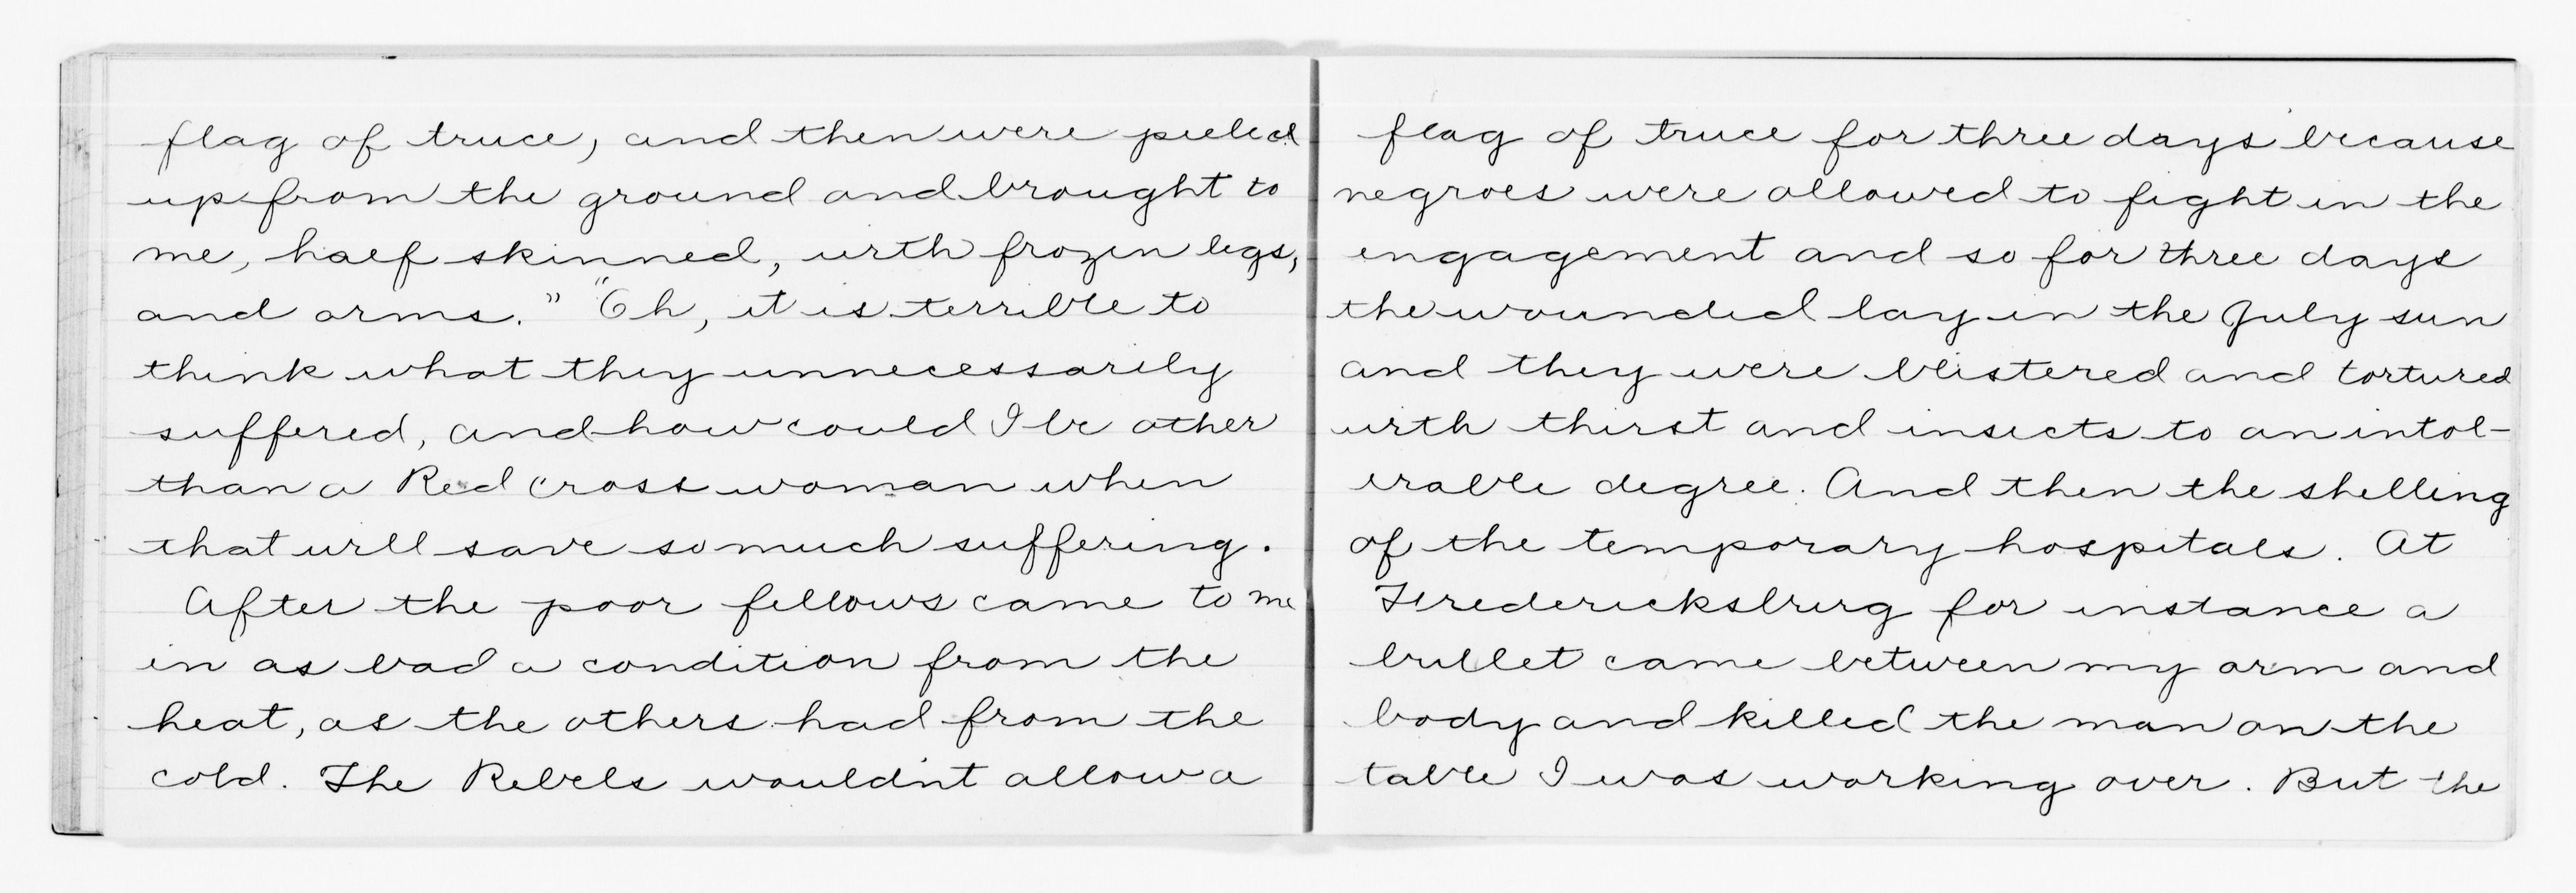 flag of truce, and then were peeled
up from the ground and brought to
me, half skinned, with frozen legs,
and arms." "Oh, it is terrible to
think what they unnecessarily
suffered, and how could I be other
than a Red Cross woman when
that will save so much suffering.
After the poor fellows came to me
in as bad a condition from the
heat, as the others had from the
cold. The Rebels wouldn't allow a
flag of truce for three days because
negroes were allowed to fight in the
engagement and so for three days
the wounded lay in the July sun
and they were blistered and tortured
with thirst and insects to an intol-
erable degree. And then the shelling
of the temporary hospitals. At
Fredericksburg for instance a
bullet came between my arm and
body and killed the man on the
table I was working over. But the